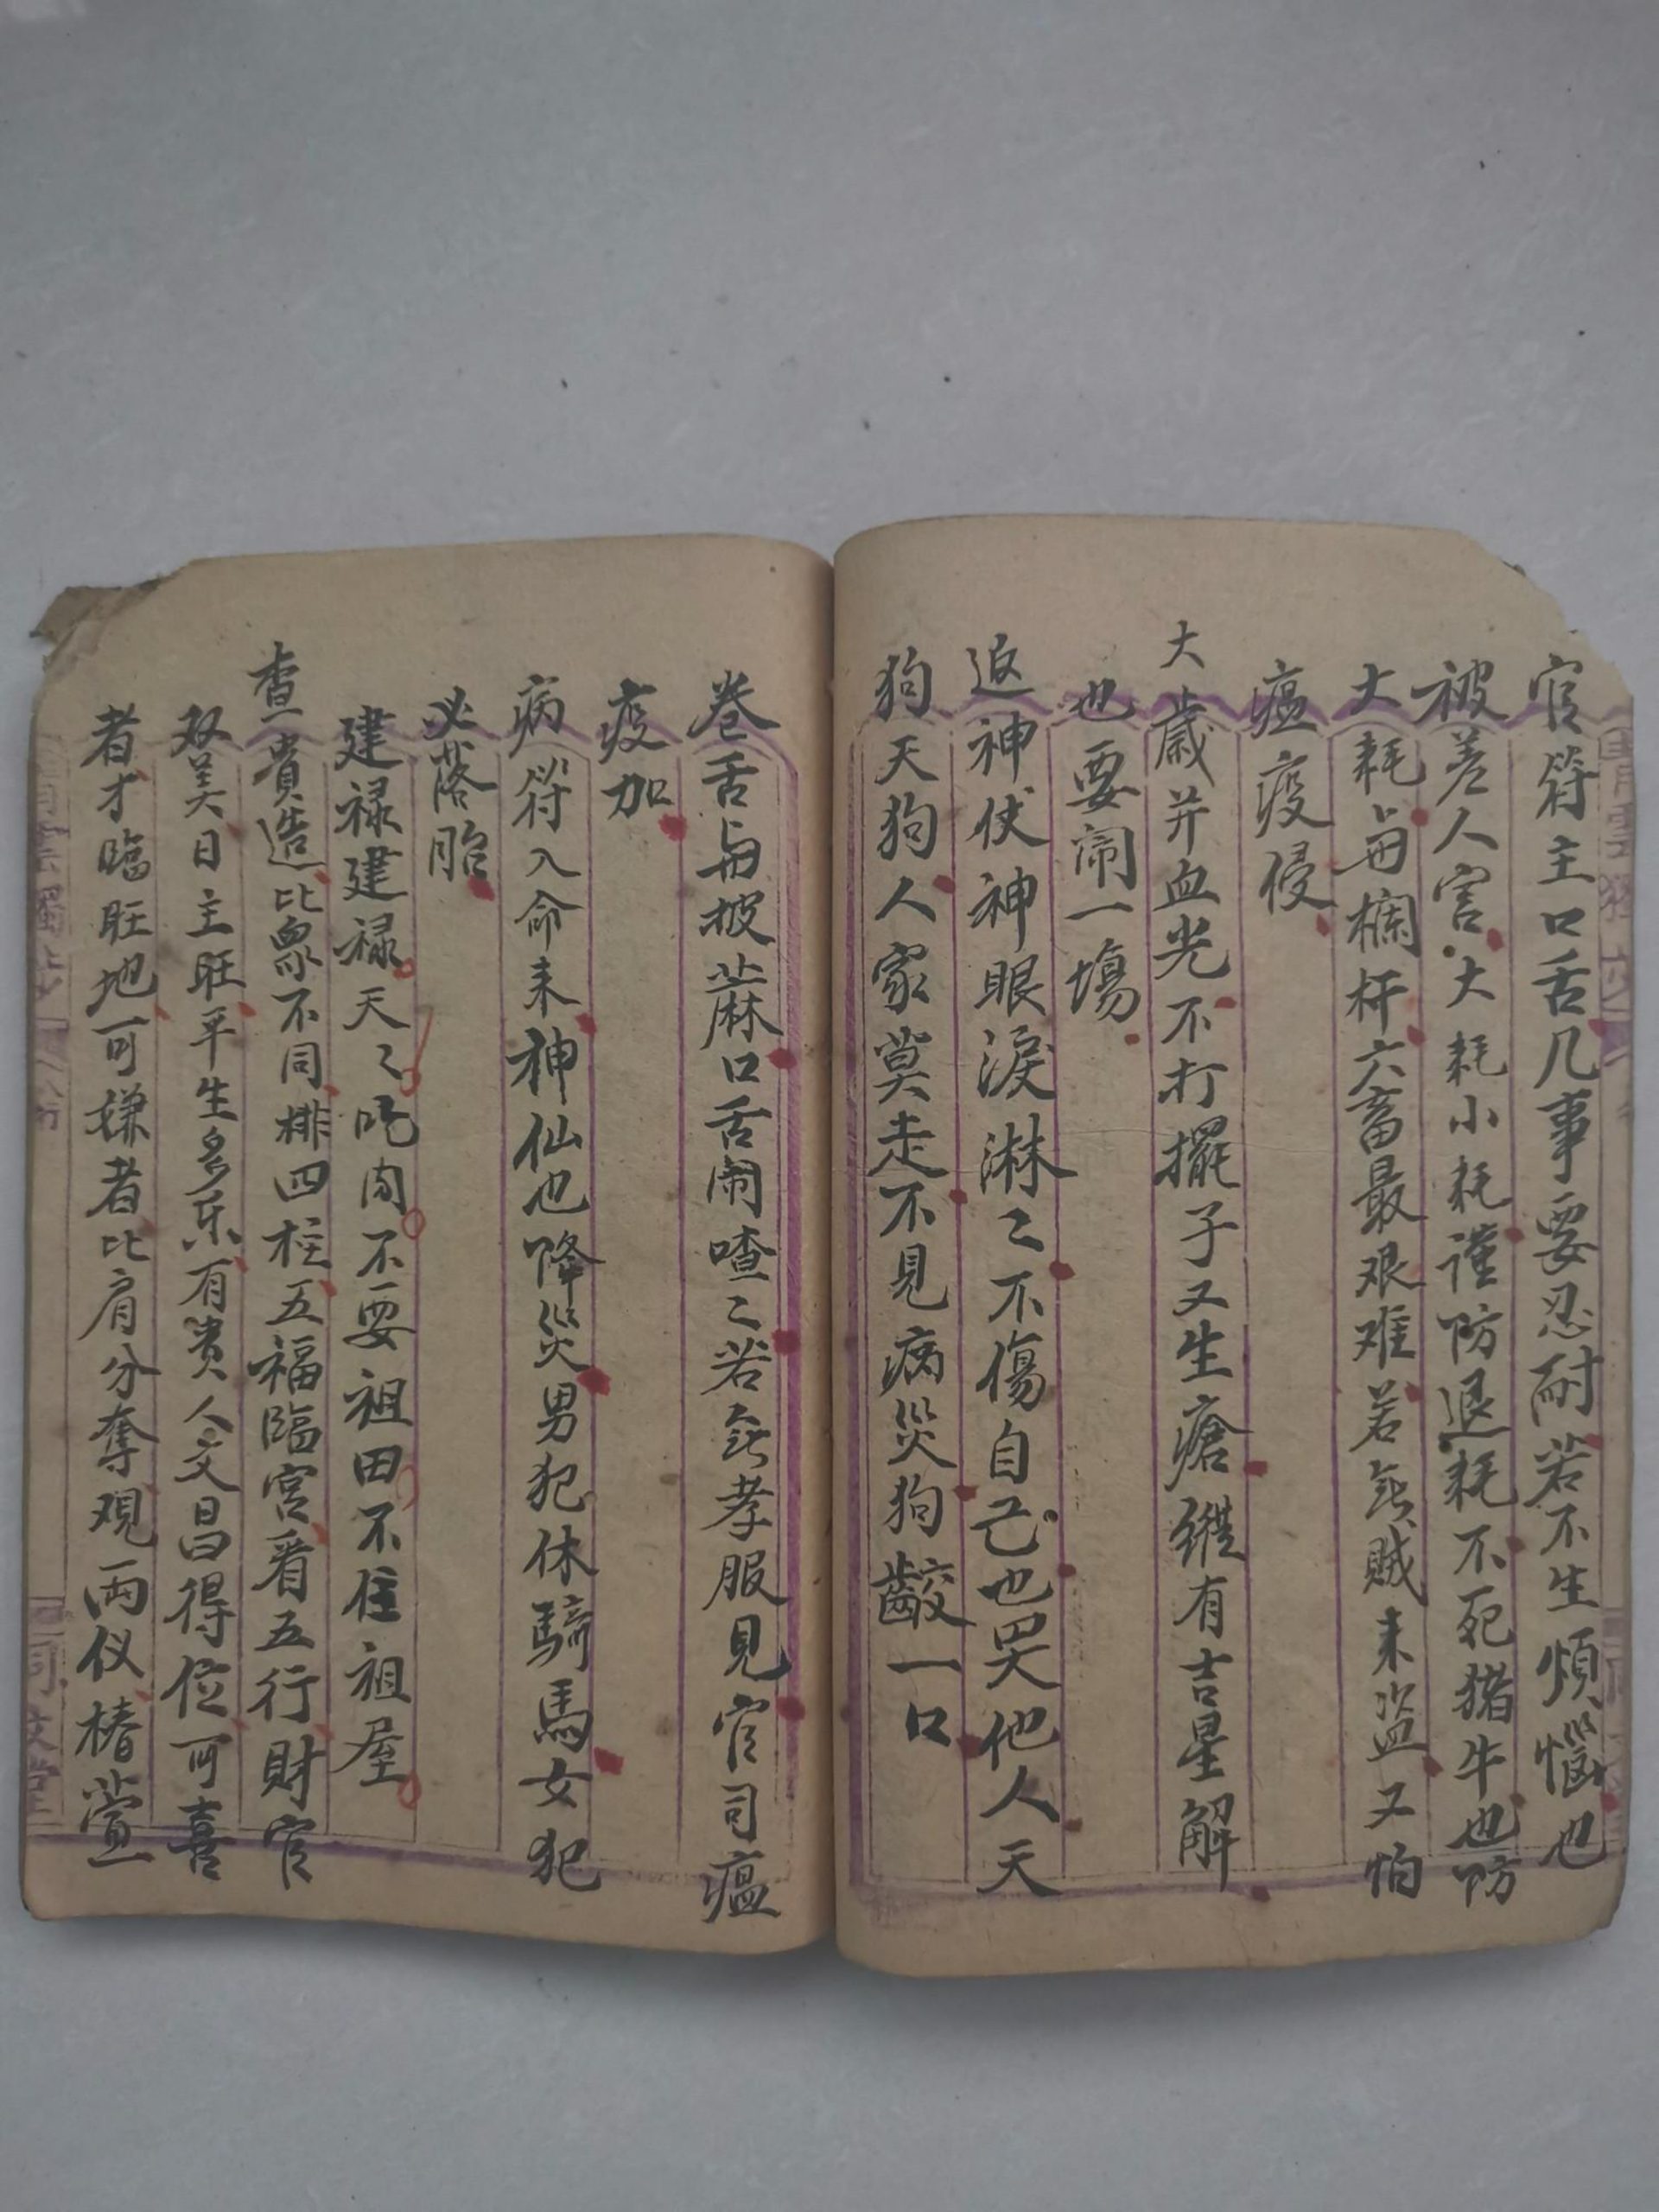 官符主口舌几事要忍耐若不生煩惱也
被差人害大耗小耗谨防退耗不死猪牛也防
大耗与欄杆六畜最艰难若無贼来盗又怕
瘟疫侵
大歲并血光不打擺子又生瘡縱有吉星解
也要闹一場
返神伏神眼淚淋〻不傷自己也哭他人天
狗天狗人家莫走不見病災狗齩一口
卷舌与披蔴口舌闹喳〻若無孝服見官司瘟
疫加
病符入命来神仙也降災男犯休騎馬女犯
必落胎
建禄建禄天〻吃肉不要祖田不住祖屋
查貴造比象不同排四柱五福臨宮看五行財官
双美日主旺平生多乐有贵人文昌得位可喜
者才臨旺地可嫌者比肩分奪观兩仪椿萱